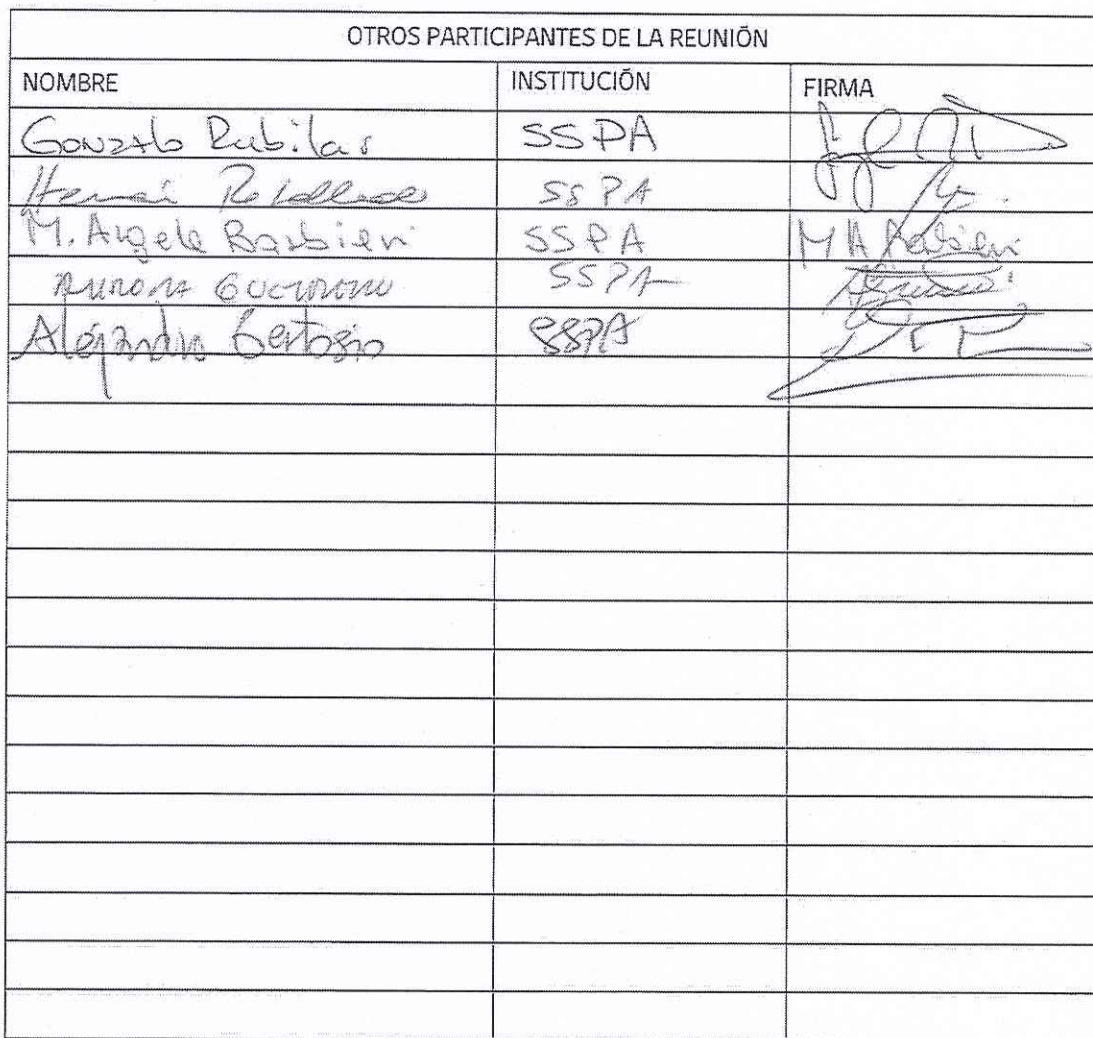 OTROS PARTICIPANTES DE LA REUNIÓN
NOMBRE INSTITUCIÓN FIRMA
Gonzalo Rubilar SSPA
SSPA
M. Angela Barbieri SSPA MA Barbieri
Aurora Guerrero SSPA
Alejandro Gertosio SSPA